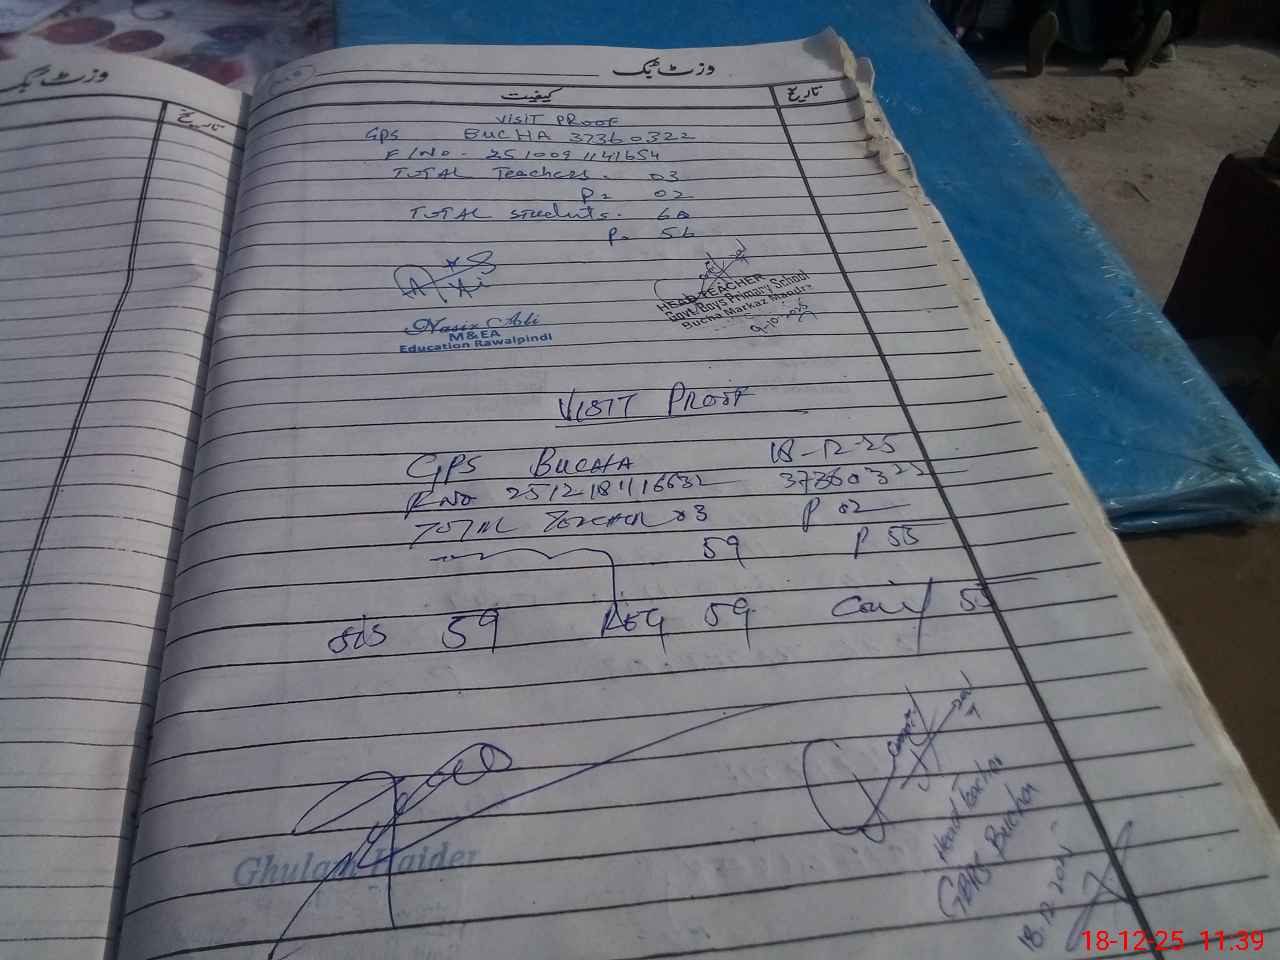 وزٹ بک
تاریخ
وزٹ بک
کیفیت
تاریخ
VISIT PROOF
GPS BUCHA 37360322
F/No. 251009 1141654
TOTAL Teachers. 03
P= 02
TOTAL students. 60
P= 56
Nasir Ali
M&EA
Education Rawalpindi
HEAD TEACHER
Govt. Boys Primary School
Bucha Markaz Mandra
9-10-2025
VISIT PROOF
GPS BUCHA 18-12-25
R No 2512181116632 37360322
TOTAL TEACHER 03 P 02
59 P 55
sis 59 REG 59 55
Ghulam Haider
Head Teacher
GBPS Bucha
18.12.2025
18-12-25 11:39